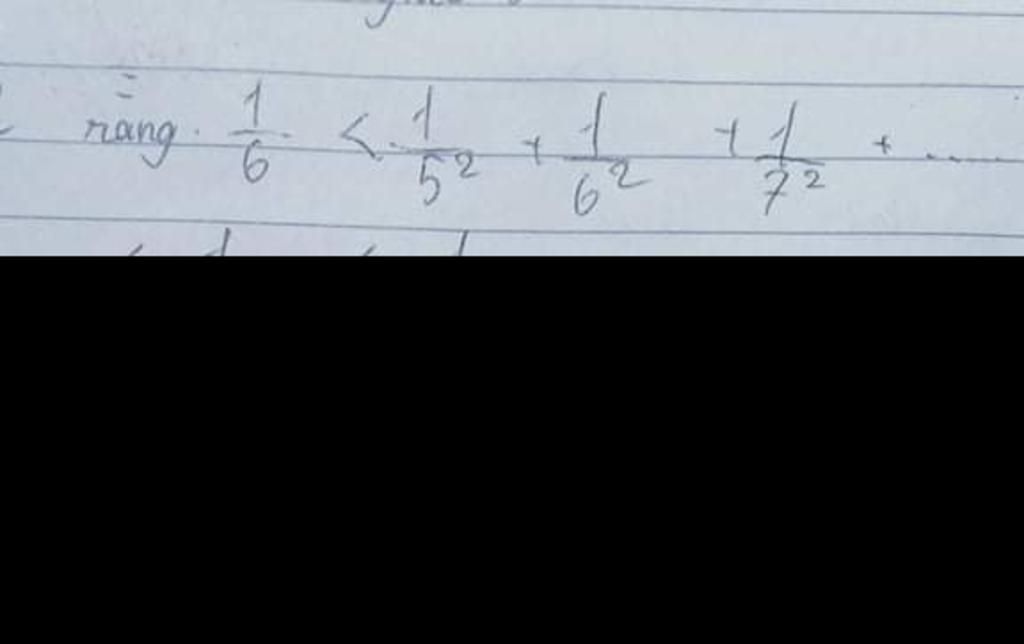 rằng. 1/6 < 1/5² + 1/6² + 1/7² + ....